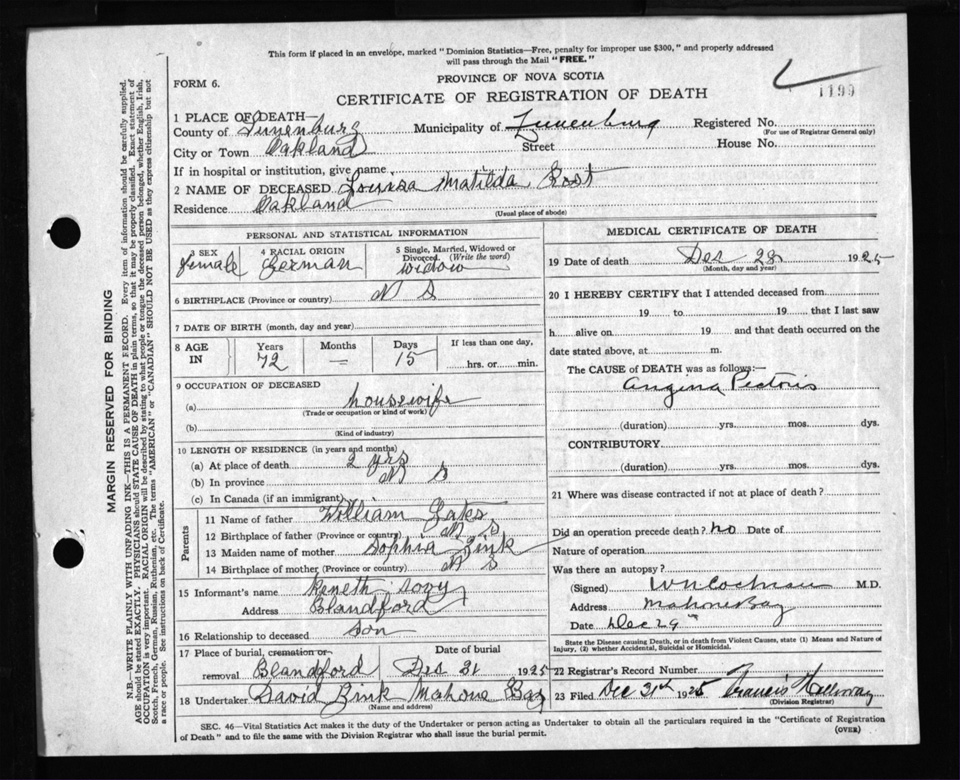 This form if placed in an envelope, marked "Dominion Statistics—Free, penalty for improper use $300," and properly addressed
will pass through the Mail "FREE."
FORM 6.
PROVINCE OF NOVA SCOTIA
1199
CERTIFICATE OF REGISTRATION OF DEATH
1 PLACE OF DEATH—
County of Lunenburg Municipality of Lunenburg Registered No.
(For use of Registrar General only)
City or Town Oakland Street House No.
If in hospital or institution, give name
2 NAME OF DECEASED Louisa Matilda
Residence Oakland
(Usual place of abode)
PERSONAL AND STATISTICAL INFORMATION
3 SEX
female
4 RACIAL ORIGIN
German
5 Single, Married, Widowed or
Divorced (Write the word)
widow
6 BIRTHPLACE (Province or country) N S
7 DATE OF BIRTH (month, day and year)
8 AGE IN
Years 72
Months —
Days 15
If less than one day,
hrs. or min.
9 OCCUPATION OF DECEASED
(a) housewife
(Trade or occupation or kind of work)
(b)
(Kind of industry)
10 LENGTH OF RESIDENCE (in years and months)
(a) At place of death 2 yrs
(b) In province N S
(c) In Canada (if an immigrant)
Parents
11 Name of father William
12 Birthplace of father (Province or country) N S
13 Maiden name of mother Sophia Zink
14 Birthplace of mother (Province or country) N S
15 Informant's name Keneth
Address Blandford
16 Relationship to deceased Son
17 Place of burial, cremation or removal Blandford
Date of burial Dec 31 1925
18 Undertaker David Zink Mahone Bay
(Name and address)
MEDICAL CERTIFICATE OF DEATH
19 Date of death Dec 28 1925
(Month, day and year)
20 I HEREBY CERTIFY that I attended deceased from
19 to 19 that I last saw
h alive on 19 and that death occurred on the
date stated above, at m.
The CAUSE of DEATH was as follows:—
Angina Pectoris
(duration) yrs. mos. dys.
CONTRIBUTORY
(duration) yrs. mos. dys.
21 Where was disease contracted if not at place of death?
Did an operation precede death? no Date of
Nature of operation
Was there an autopsy?
(Signed) W N Cochran M.D.
Address Mahone Bay
Date Dec 29th
State the Disease causing Death, or in death from Violent Causes, state (1) Means and Nature of
Injury, (2) whether Accidental, Suicidal or Homicidal.
22 Registrar's Record Number
23 Filed Dec 31st 1925 Francis
(Division Registrar)
SEC. 46—Vital Statistics Act makes it the duty of the Undertaker or person acting as Undertaker to obtain all the particulars required in the "Certificate of Registration
of Death" and to file the same with the Division Registrar who shall issue the burial permit.
(OVER)
MARGIN RESERVED FOR BINDING
N.B.—WRITE PLAINLY WITH UNFADING INK—THIS IS A PERMANENT RECORD. Every item of information should be carefully supplied.
AGE should be stated EXACTLY. PHYSICIANS should STATE CAUSE OF DEATH in plain terms, so that it may be properly classified. Exact statement of
OCCUPATION is very important. RACIAL ORIGIN will be described by stating to what people or tongue the deceased person belonged, whether English, Irish,
Scotch, French, German, Russian, Ruthenian, etc. The terms "AMERICAN" or "CANADIAN" SHOULD NOT BE USED as they express citizenship but not
a race or people. See instructions on back of Certificate.